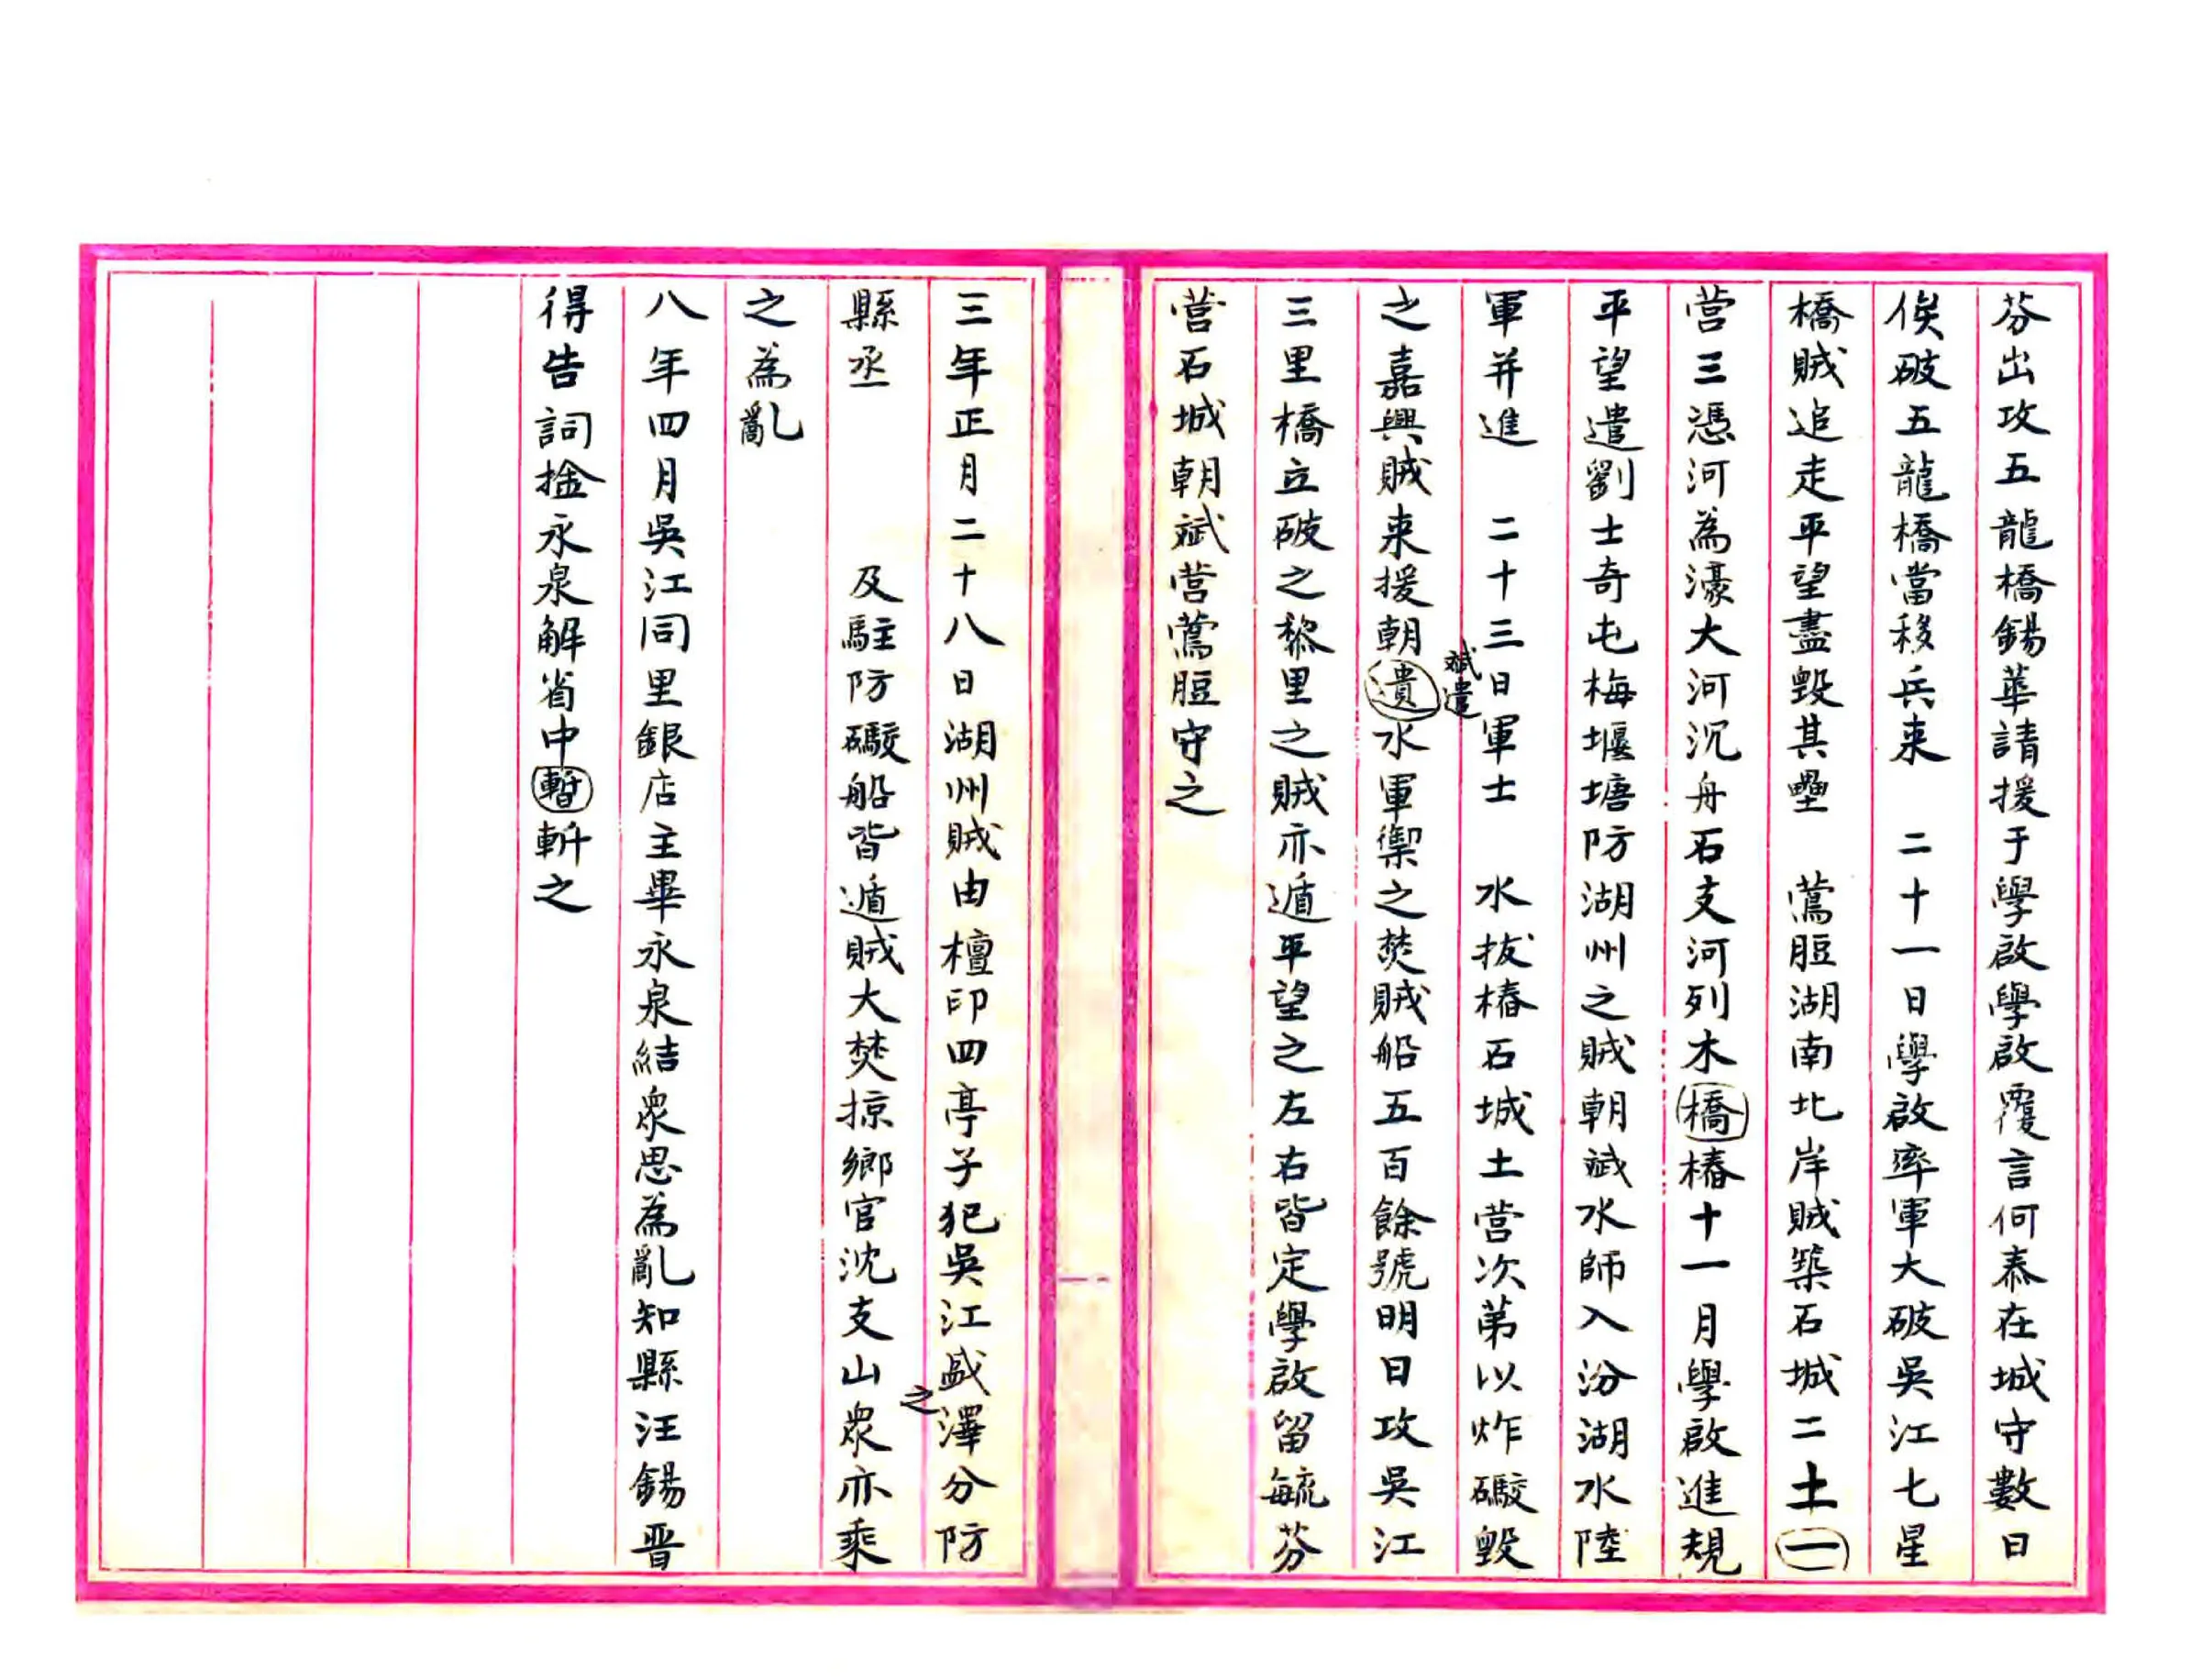 芬出攻五龍橋錫華請援于學啟學啟覆言何泰在城守數日
俟破五龍橋當移兵来　二十一日學啟率軍大破吳江七星
橋賊追走平望盡毀其壘　鶯脰湖南北岸賊築石城二土一
营三憑河為濠大河沉舟石支河列木橋樁十一月學啟進規
平望遣劉士奇屯梅堰塘防湖州之賊朝斌水師入汾湖水陸
軍并進　二十三日軍士　水拔樁石城土营次第以炸礮毀
斌遣
之嘉興賊来援朝遺水軍禦之焚賊船五百餘號明日攻吳江
三里橋立破之黎里之賊亦遁平望之左右皆定學啟留毓芬
营石城朝斌营鶯脰守之
三年正月二十八日湖州賊由檀印四亭子犯吳江盛澤分防
之
縣丞　　　及駐防礮船皆遁賊大焚掠鄉官沈支山眾亦乘
之為亂
八年四月吳江同里銀店主畢永泉結眾思為亂知縣汪錫晋
得告詞捦永泉解省中暫斬之